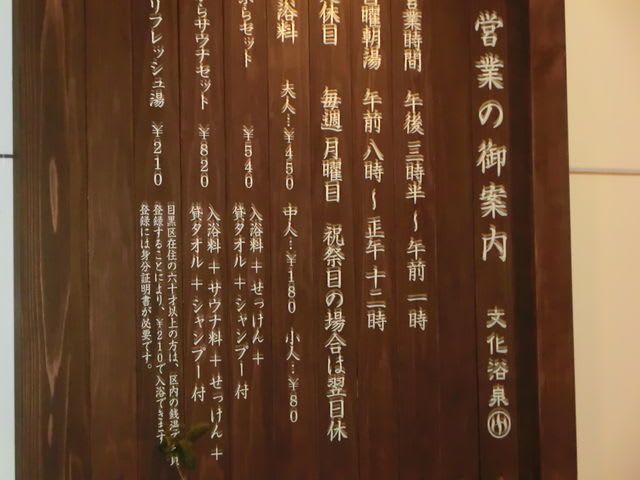 営業の御案内 文化浴泉
営業時間 午後三時半～午前一時
日曜朝湯 午前八時～正午十二時
定休日 毎週月曜日 祝祭日の場合は翌日休
入浴料 大人…￥450 中人…￥180 小人…￥80
ぶらセット ￥540 入浴料＋せっけん＋
貸タオル＋シャンプー付
らサウナセット ￥820 入浴料＋サウナ料＋せっけん＋
貸タオル＋シャンプー付
リフレッシュ湯 ￥210 目黒区在住の六十才以上の方は、区内の銭湯で
登録することにより、￥210で入浴できます
登録には身分証明書が必要です。